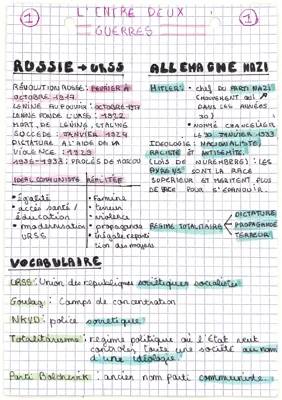 1
L'ENTRE DEUX
GUERRES
1
RUSSIE → URSS
RÉVOLUTION RUSSE: FÉVRIER À
OCTOBRE 1917
LENINE AU POUVOIR: OCTOBRE 1917
LENINE FONDE L'URSS: 1922
MORT DE LENINE, STALINE
SUCCEDE: JANVIER 1924
DICTATURE A L'AIDE DE LA
VIOLENCE: 1929
1936-1938: PROCÈS DE MOSCOU
IDEAL COMMUNISTE
RÉALITÉE
• égalité
• accès santé/
éducation
• modernisation
URSS
• Famine
• terreur
• violence
• propagande
• inégale reparti
tion des moyens
ALLEMAGNE NAZI
HITLER:
• chef du PARTI NAZI
DANS LES ANNÉES
30)
• NOMMÉ CHANCELIER
LE 30 JANVIER 1933
IDEOLOGIE: NATIONALISTE,
RACISTE ET ANTISÉMITE.
(LOIS DE NUREMBERG): LES
SONT LA RACE
SUPERIEUR ET MERITENT PLUS
DE PLACE POUR S'EPANOUIR.
REGIME TOTALITAIRE
DICTATURE
PROPAGANDE
TERREUR
VOCABULAIRE
URSS: Union des républiques soviétiques socialistes
Goulag: Camps de concentration
NKVD: police soviétique
Totalitarisme: regime politique où l'État veut
controler toute une société au nom
d'une idéologie.
Parti Bolchevik: ancien nom parti communiste.